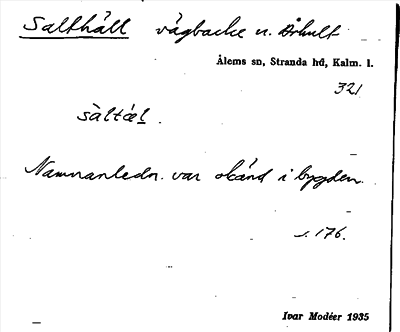 Salthäll vägbacke n. Århult
Ålems sn, Stranda hd, Kalm. l.
321
sàltæ̀l.
Namnanledn. var okänd i bygden.
s. 176.
Ivar Modéer 1935